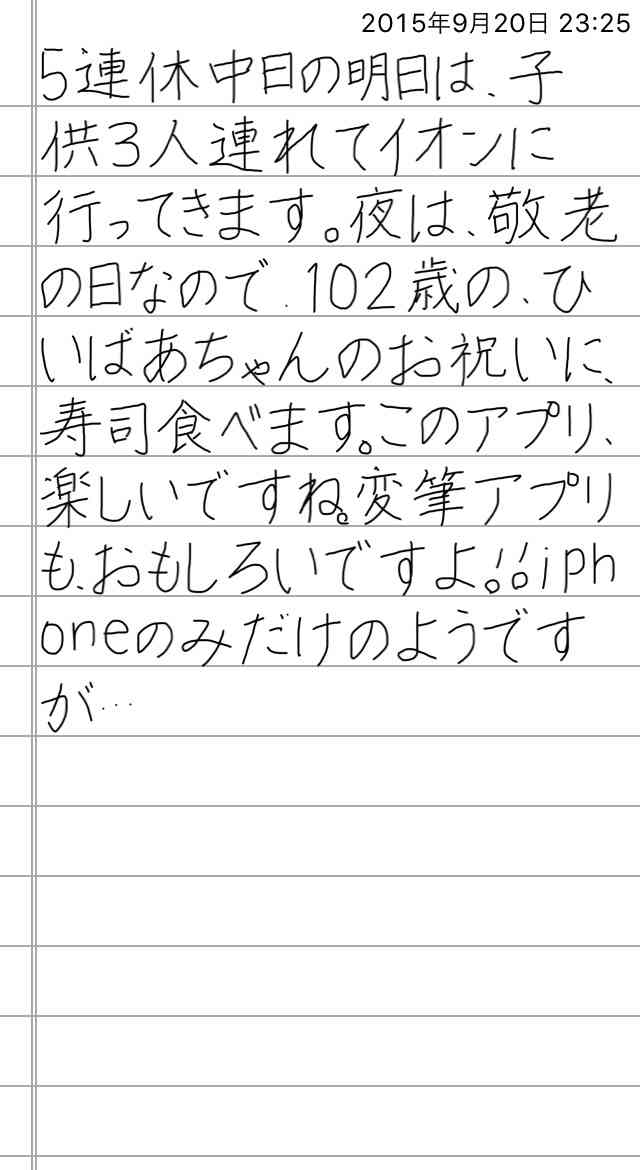 2015年9月20日 23:25
5連休中日の明日は、子
供3人連れてイオンに
行ってきます。夜は、敬老
の日なので、102歳の、ひ
いばあちゃんのお祝いに、
寿司食べます。このアプリ、
楽しいですね。変筆アプリ
も、おもしろいですよ!!iph
oneのみだけのようです
が…